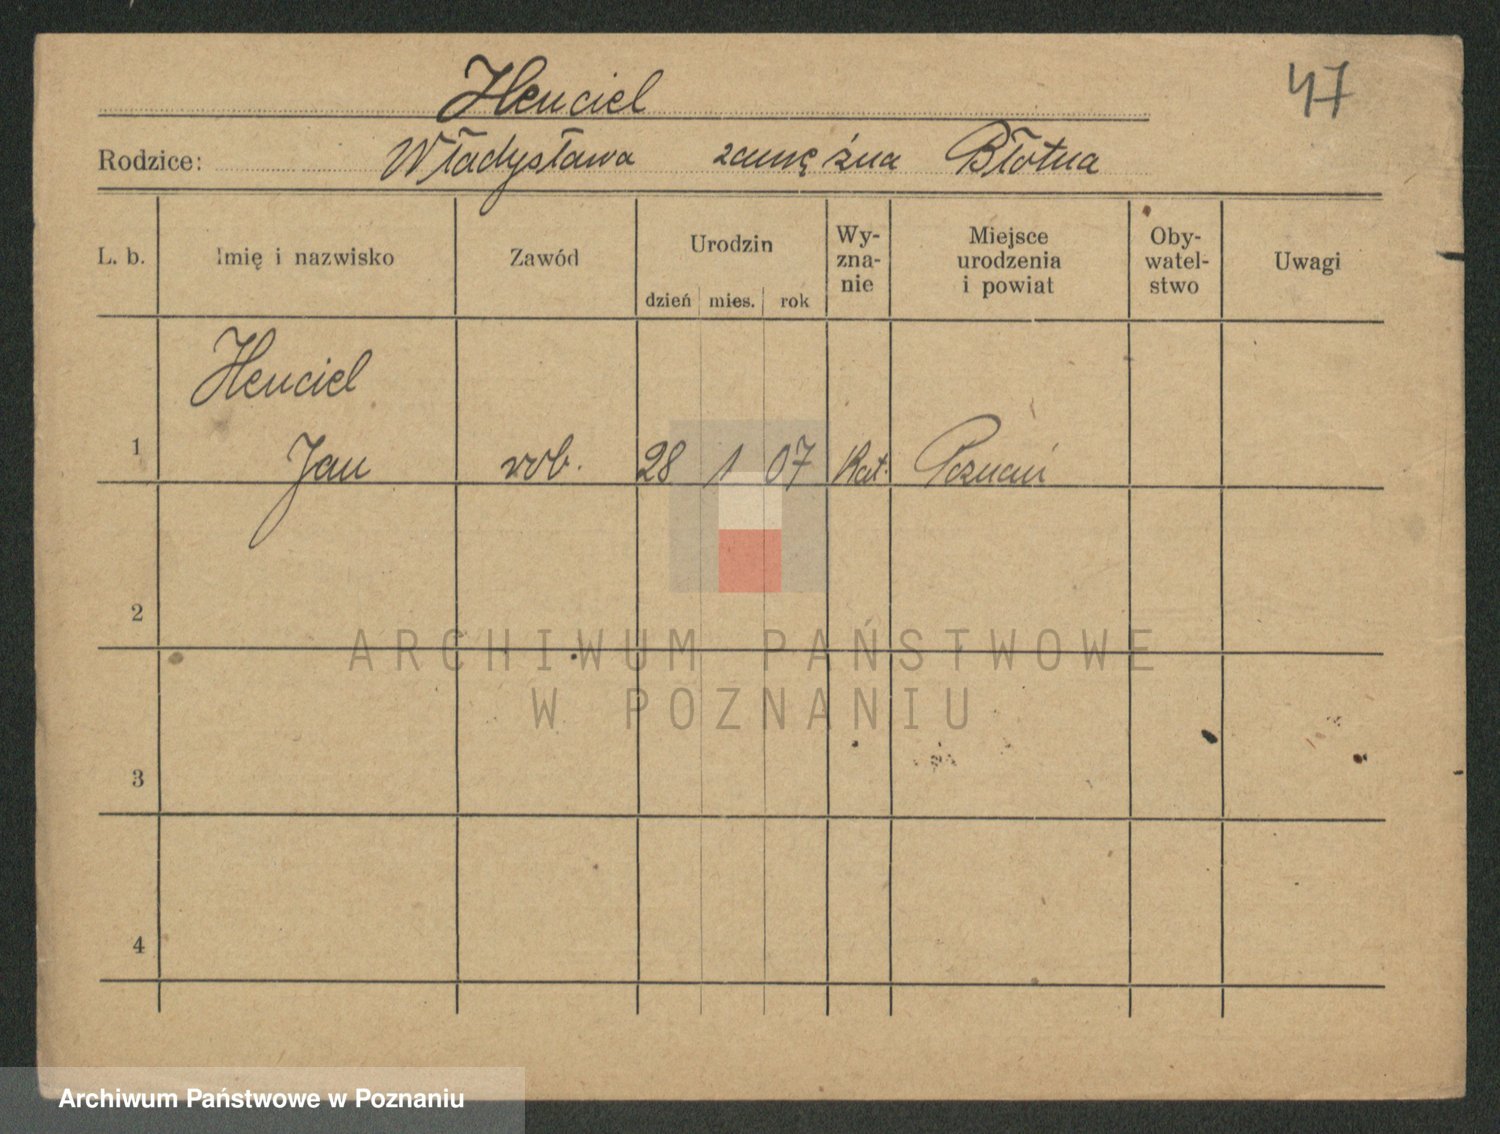 Henciel
47
Rodzice: Władysława zamężna Błotna
L. b. Imię i nazwisko Zawód Urodzin dzień mies. rok Wy-zna-nie Miejsce urodzenia i powiat Oby-watel-stwo Uwagi
Henciel
1 Jan rob. 28 1 07 Kat. Poznań
2
ARCHIWUM PAŃSTWOWE
W POZNANIU
3
4
Archiwum Państwowe w Poznaniu